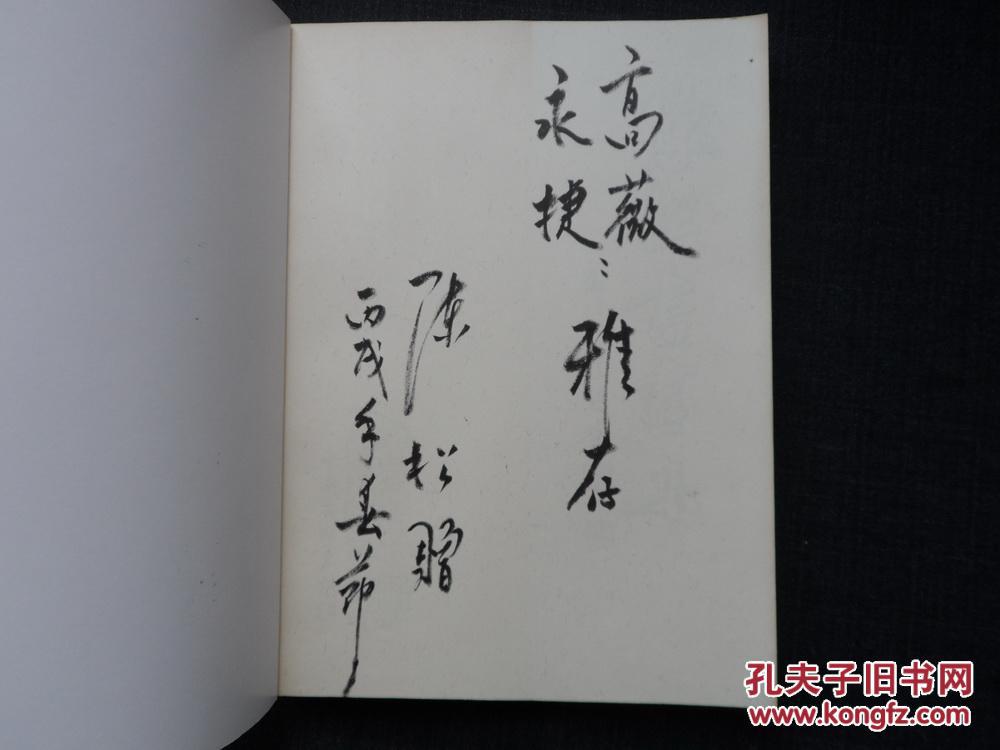 高薇
永捷：
雅存
陈松赠
丙戌年春节
孔夫子旧书网
www.kongfz.com